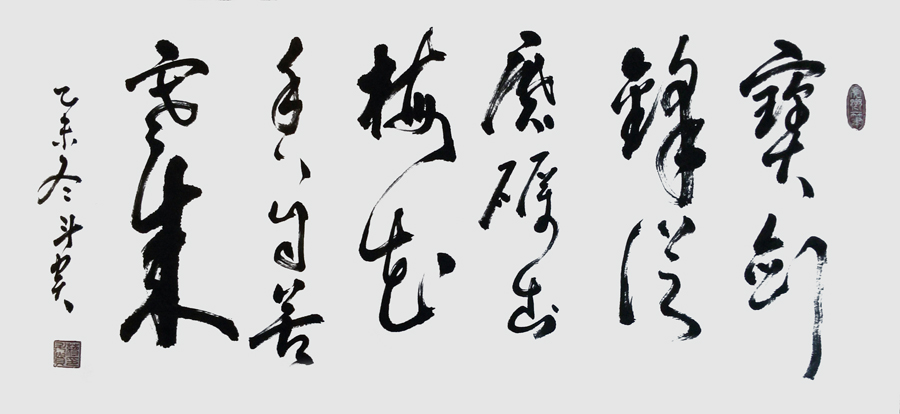 寶劍
鋒從
磨礪出
梅花
香自苦
寒來
乙未冬斗